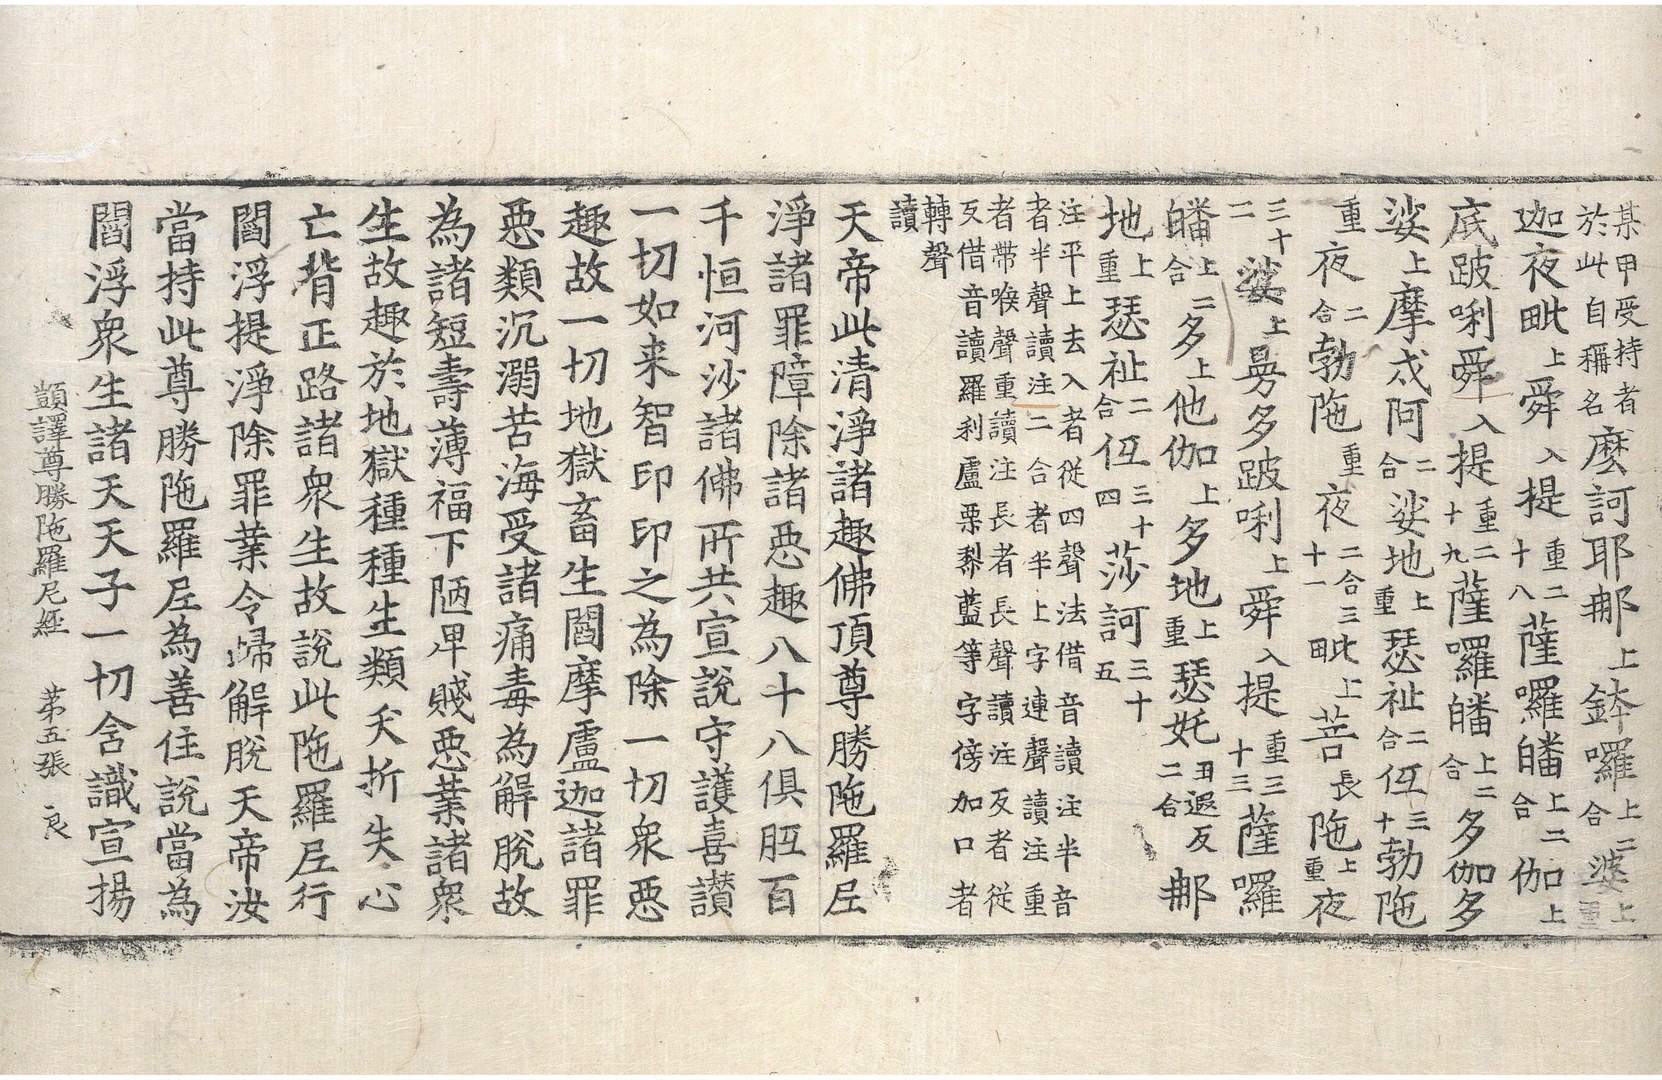 某甲受持者
於此自稱名麽訶耶那上鉢囉上二合娑上重
迦夜毗上舜入提重二十八薩囉皤上二合伽上
底跛唎舜入提重二十九薩囉皤上二合多伽多
娑上摩忒阿二合娑地上重瑟祉二合伍三十勃陁
重夜二合勃陁重夜二合三十一毗上菩長陁上重夜
三十二娑上㬅多跛唎上舜入提重三十三薩囉
皤上二合多上他伽上多地上重瑟奼丑遐反二合那
地上重瑟祉二合伍三十四莎訶三十五
注平上去入者従四聲法借音讀注半音
者半聲讀注二合者半上字連聲讀注重
者帶喉聲重讀注長者長聲讀注反者従
反借音讀羅利盧栗黎藍等字傍加口者
轉聲
讀
天帝此清淨諸趣佛頂尊勝陁羅尼
淨諸罪障除諸惡趣八十八俱胝百
千恒河沙諸佛所共宣說守護喜讃
一切如来智印印之為除一切衆惡
趣故一切地獄畜生閻摩盧迦諸罪
惡類沉溺苦海受諸痛毒為解脫故
為諸短壽薄福下陋卑賤惡業諸衆
生故趣於地獄種種生類夭折失心
亡背正路諸衆生故說此陁羅尼行
閻浮提淨除罪業令歸解脫天帝汝
當持此尊勝陁羅尼為善住說當為
閻浮衆生諸天天子一切含識宣揚
顗譯尊勝陁羅尼經 苐五張 良